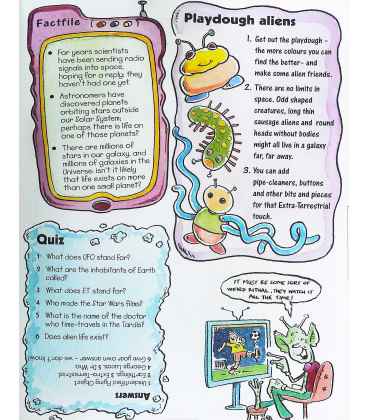 Factfile
• For years scientists
have been sending radio
signals into space,
hoping for a reply: they
haven't had one yet.
• Astronomers have
discovered planets
orbiting stars outside
our Solar System;
perhaps there is life on
one of those planets?
• There are millions of
stars in our galaxy, and
millions of galaxies in the
Universe: isn't it likely
that life exists on more
than one small planet?
Playdough aliens
1. Get out the playdough -
the more colours you can
find the better- and
make some alien friends.
2. There are no limits in
space. Odd shaped
creatures, long thin
sausage aliens and round
heads without bodies
might all live in a galaxy
far, far away.
3. You can add
pipe-cleaners, buttons
and other bits and pieces
for that Extra-Terrestrial
touch.
Quiz
1 What does UFO stand for?
2 What are the inhabitants of Earth
called?
3 What does ET stand for?
4 Who made the Star Wars films?
5 What is the name of the doctor
who time-travels in the Tardis?
6 Does alien life exist?
Answers
1 Unidentified Flying Object
2 Earthlings 3 Extra-Terrestrial
4 George Lucas 5 Dr. Who
6 Give your own answer - we don't know!
IT MUST BE SOME SORT OF
WEIRD RITUAL, THEY WATCH IT
ALL THE TIME!